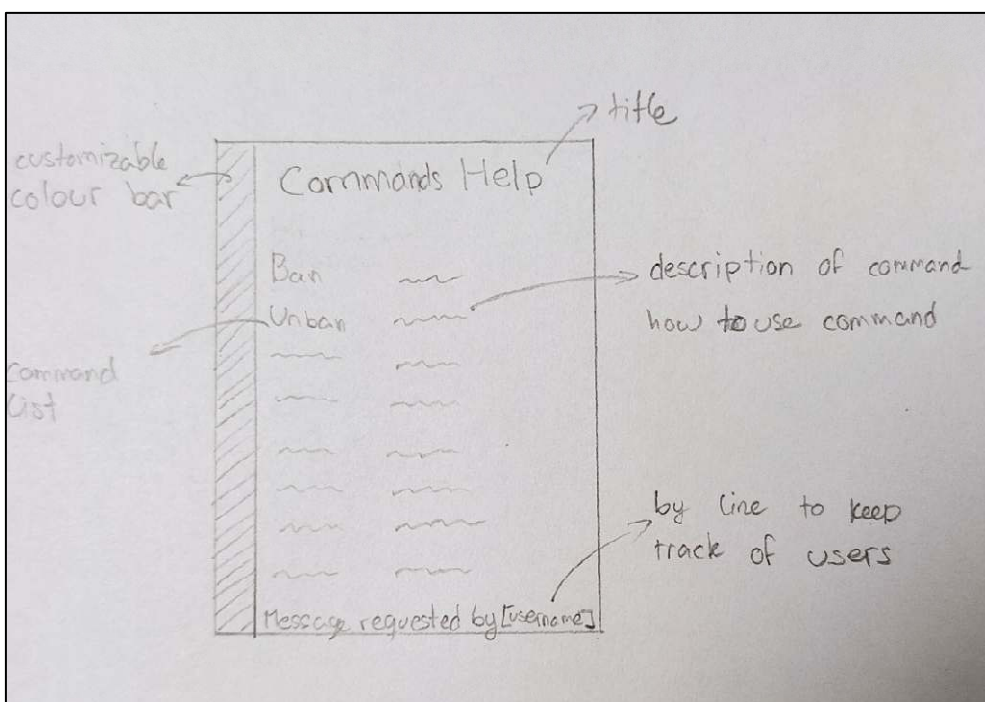 title
customizable
colour bar
Commands Help
Ban
description of command
Unban
how to use command
Command
List
by line to keep
track of users
Message requested by [username]